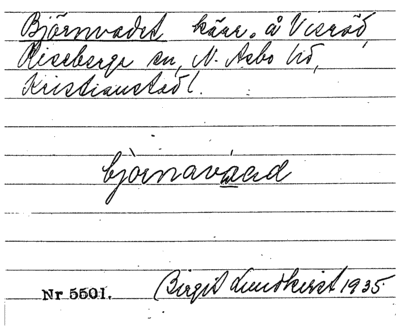 Björnvadet, kärr, å Visröd,
Riseberga sn, N. Åsbo hd,
Kristianstad l.
björnavaad
Nr 5501. Birgit Lundkvist 1935.